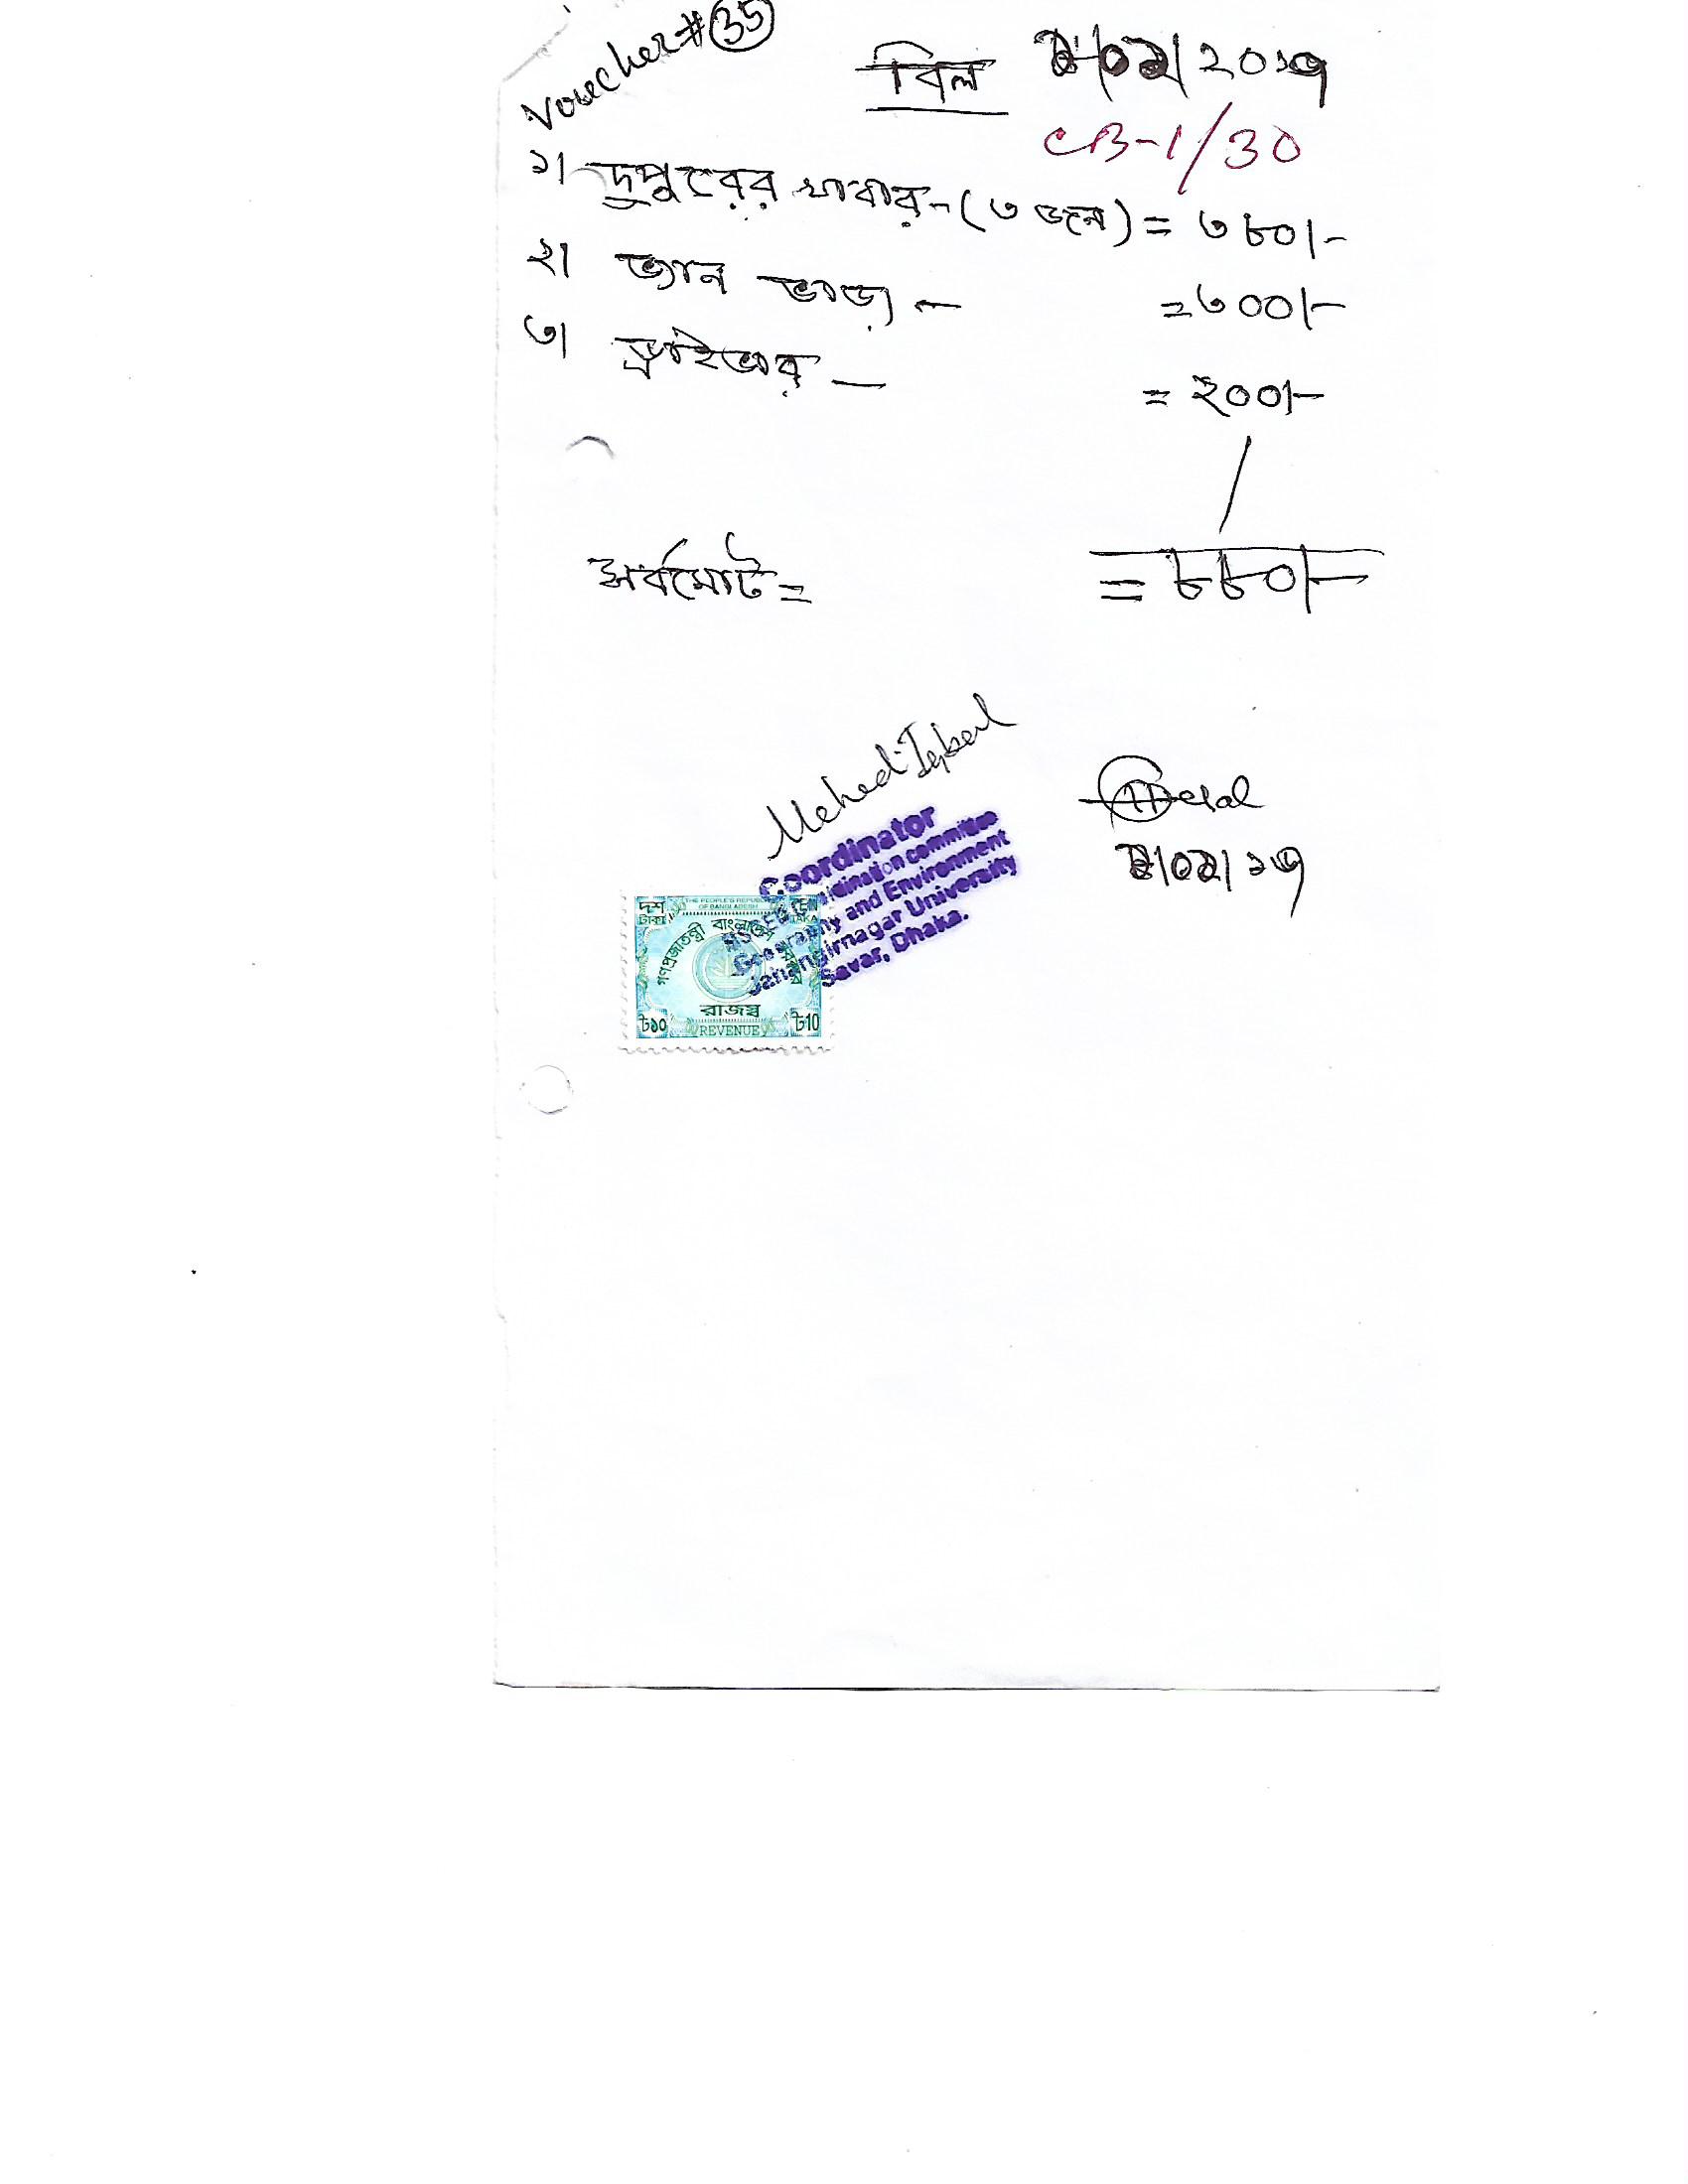 Voucher # 35
বিল /২০১৭
CB-1/30
১। দুপুরের খাবার - (৩ জন) = ৩৮০/-
২। ভ্যান ভাড়া - = ৩০০/-
৩। ড্রাইভার - = ২০০/-
সর্বমোট = = ৮৮০/-
Mehedi Iqbal
Coordinator
committee
Geography and Environment
Jahangirnagar University
Savar, Dhaka.
দশ টাকা THE PEOPLE'S REPUBLIC OF BANGLADESH TEN TAKA
গণপ্রজাতন্ত্রী বাংলাদেশ সরকার
রাজস্ব
৳১০ REVENUE ৳10